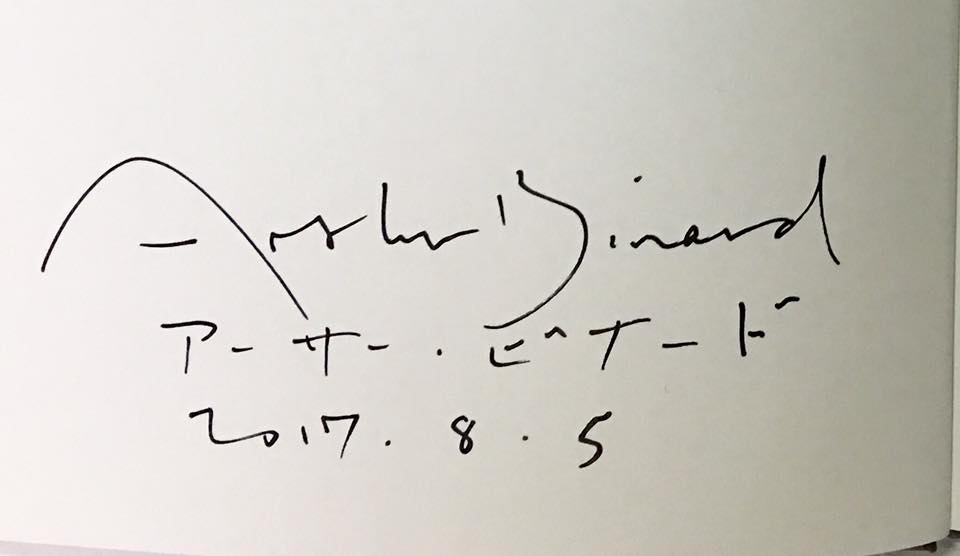 Arthur Binard
アーサー・ビナード
2017.8.5